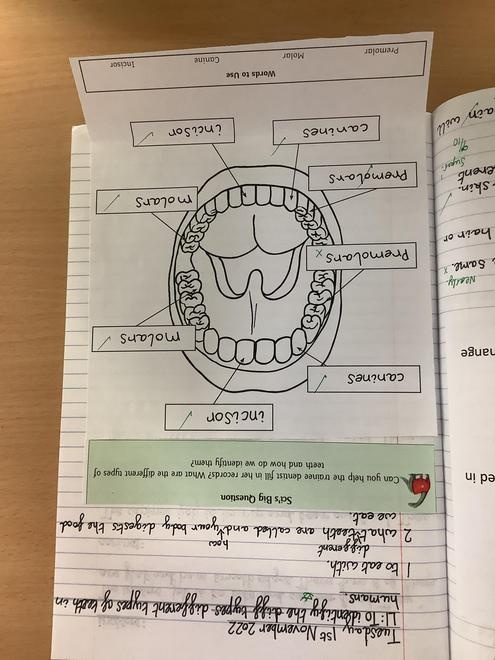 Tuesday 1st November 2022
L1: To identify the diff types different types of teeth in
humans.
1 to eat with.
different how
2 what teeth are called and your body digests the food
we eat.
Sci's Big Question
Can you help the trainee dentist fill in her records? What are the different types of
teeth and how do we identify them?
incisor
canines
molars
Premolars
molars
Premolars
canines
incisor
Words to Use
Premolar Molar Canine Incisor
ed in
hange
Nearly
same. x
hair or
skin.
erent
Super
9/10
ain will